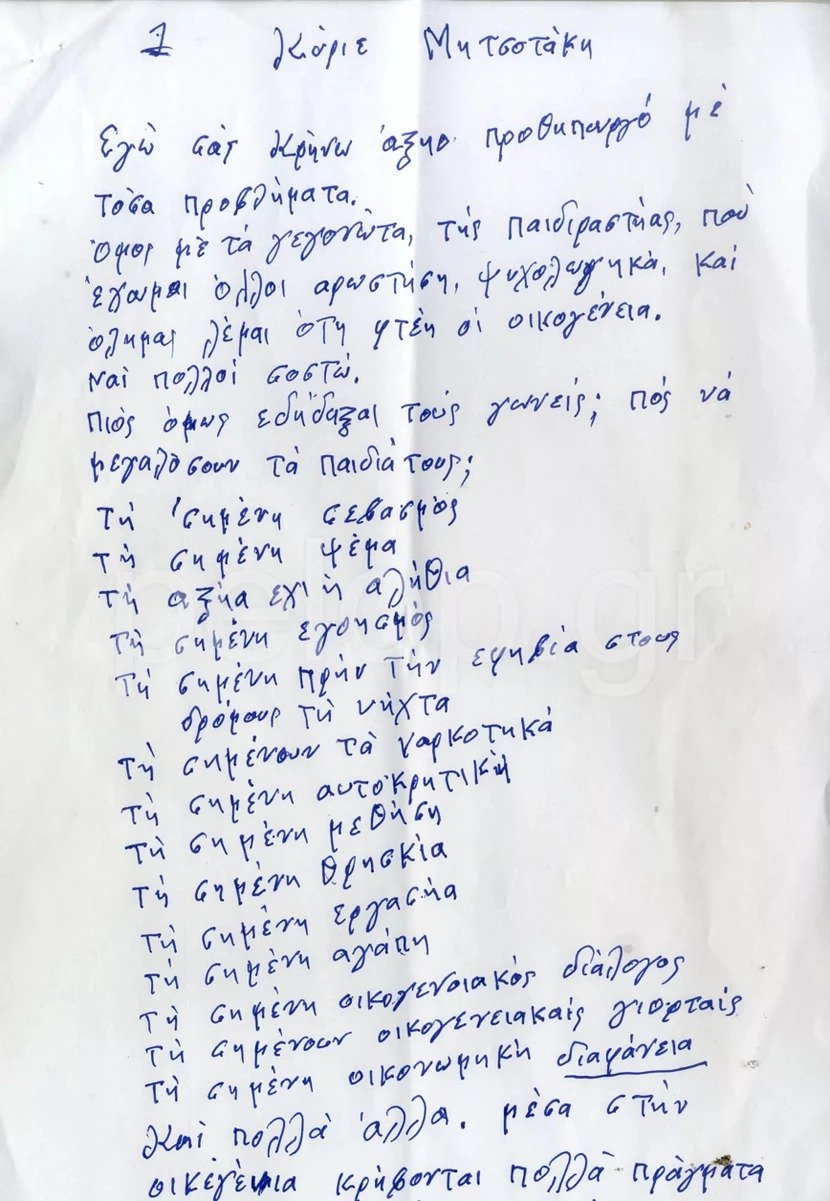 1 Κύριε Μητσοτάκη
Εγὼ σάς Κρήνω ἄξηο προθηπουργό μὲ
τὸσα προβλήματα.
όμος μὲ τά γεγονὼτα, τής παιδιραστήας, πού
ἔγωμαι όλλοι αρωστήση, ψυχολωγηκὰ, καί
όλημας λέμαι ότη φτέη οἱ οικογένεια.
Ναί πολλοί σοστὼ.
Πιός όμως εδήδαξαι τούς γωνείς; πός νά
μεγαλοσουν τὰ παιδιὰ τους;
τή 'σημένη σεβασμὸς
τὴ σημένη ψέμα
τὴ αξήα εχι ἡ αλήθια
τὴ σημένη εγοησμὸς
τὴ σημένη πρήν τήν εφηβία στους
δρόμους τὴ νήχτα
τὴ σημένουν τὰ ναρκοτηκά
τὴ σημένη αυτοκρητικὴ
τὴ σημένη μεθήση
τή σημένη θρησκία
τὴ σημένη εργασήα
τή σημένη αγάπη
τὴ σημένη οικογενοιακός διάλογος
τὴ σημένουν οικογενειακαίς γιορταίς
τὴ σημένη οικονωμηκὴ διαφάνεια
Καί πολλὰ ἄλλα. μέσα στήν
οικέγένια κρήβονται πολλὰ πράγματα
pelop.gr